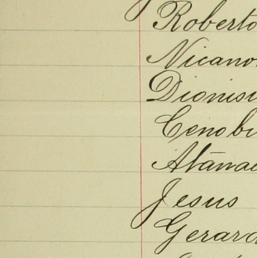 Roberto
Nicano
Dionisi
Cenobi
Atanac
Jesus
Gerard